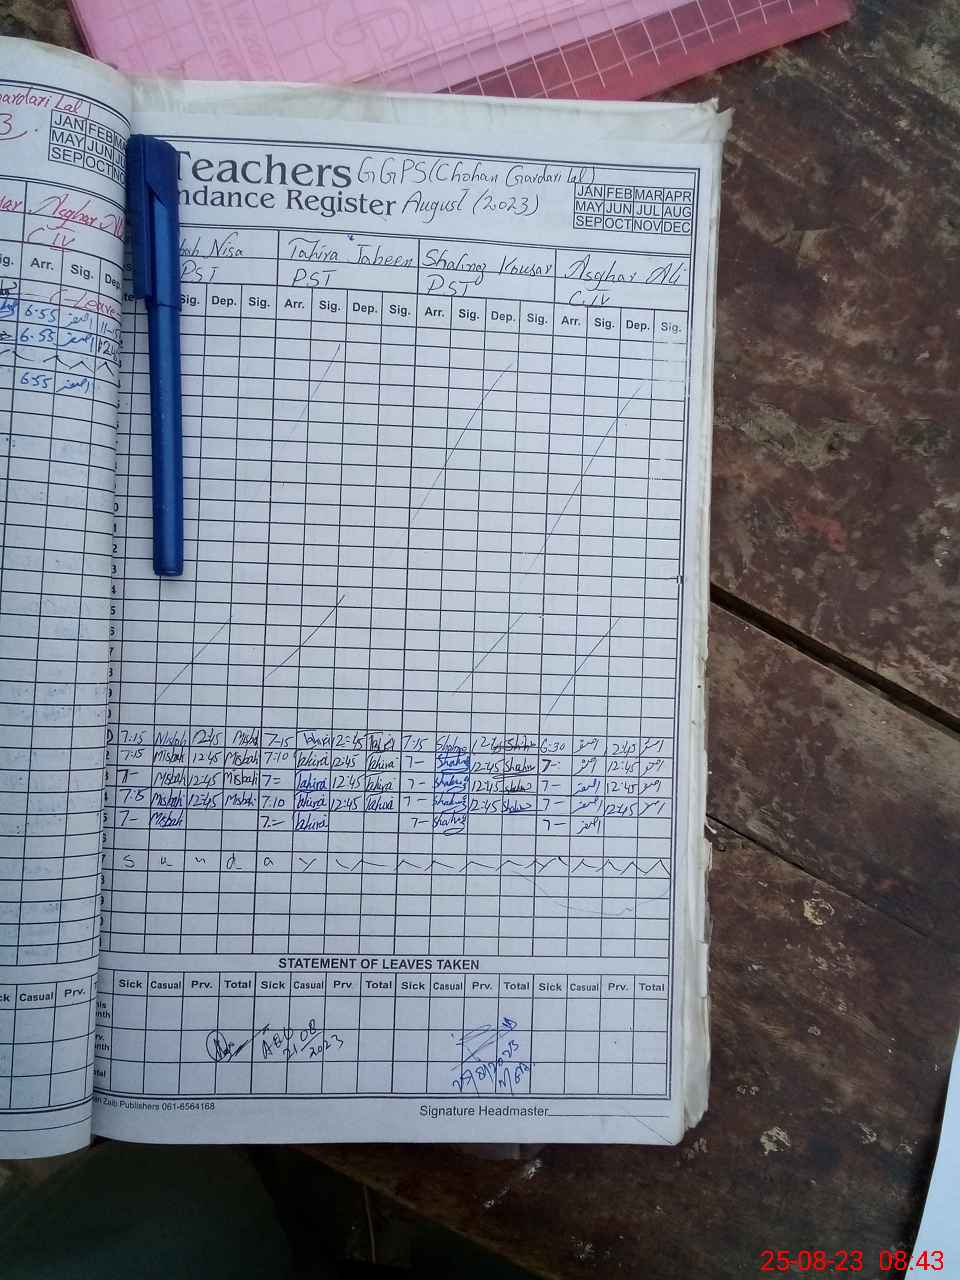 Gardari Lal
3.
JAN FEB
MAY JUN
SEP OCT
Asghar
C IV
Arr. Sig. Dep.
C-Leave
6.55 المعز 11-
6.55 المعز
6.55 المعز
Teachers GGPS (Chohan Gardari Lal)
ndance Register August (2023)
JAN FEB MAR APR
MAY JUN JUL AUG
SEP OCT NOV DEC
bah Nisa Tahira Jabeen Shahnaz Kousar Asghar Ali
PST PST PST C.IV
Sig. Dep. Sig. Arr. Sig. Dep. Sig. Arr. Sig. Dep. Sig. Arr. Sig. Dep. Sig.
7:15 Misbah 12:45 Misbah 7-15 Tahira 12=45 Tahira 7:15 Shahnaz 12:45 6:30 12:45
7:15 Misbah 12:45 Misbah 7:10 Tahira 12:45 Tahira 7- Shahnaz 12:45 Shahnaz 7- 12:45
7- Misbah 12:45 Misbah 7= Tahira 12:45 Tahira 7- Shahnaz 12:45 Shahnaz 7- 12:45
7:15 Misbah 12:45 Misbah 7:10 Tahira 12:45 Tahira 7- Shahnaz 12:45 Shahnaz 7- 12:45
7- Misbah 7:- Tahira 7- Shahnaz 7-
S u n d a y
STATEMENT OF LEAVES TAKEN
ck Casual Prv.
Sick Casual Prv. Total Sick Casual Prv Total Sick Casual Prv. Total Sick Casual Prv. Total
AEO
21/08
2023
an Zaib Publishers 061-6564168
Signature Headmaster
25-08-23 08:43